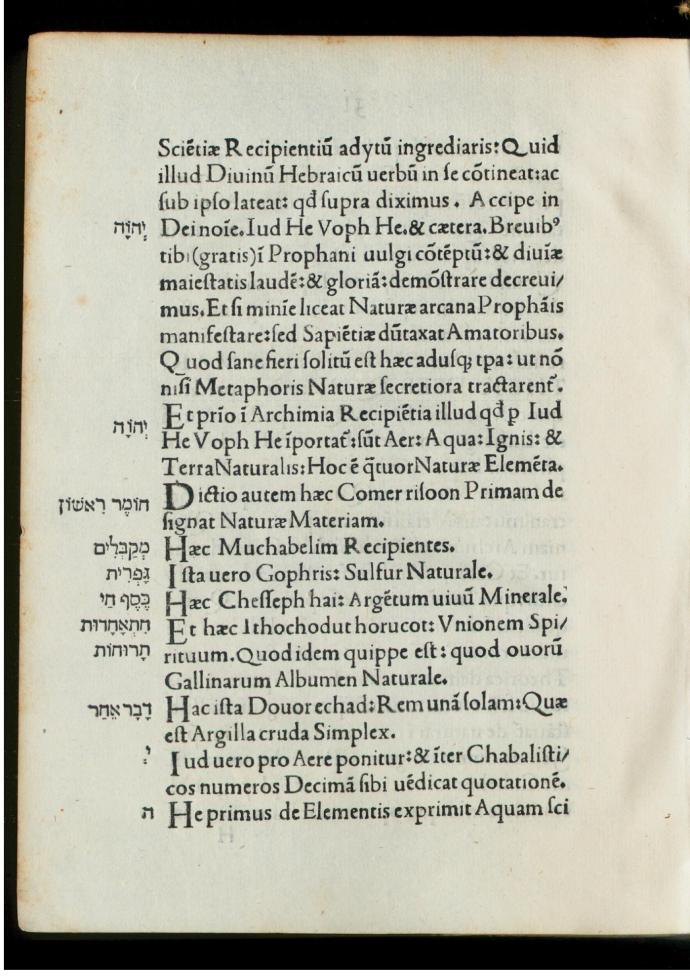 Sciētiæ Recipientiū adytū ingrediaris: Quid
illud Diuinū Hebraicū uerbū in se cōtineat: ac
sub ipso lateat: qđ supra diximus. Accipe in
יְהוָֹה Dei noīe. Iud He Voph He. & cætera. Breuibꝰ
tibi (gratis) ī Prophani uulgi cōtēptū: & diuīæ
maiestatis laudē: & gloriā: demōstrare decreui/
mus. Et si minīe liceat Naturæ arcana Prophāis
manifestare: sed Sapiētiæ dūtaxat Amatoribus.
Quod sane fieri solitū est hæc adusq; tpa: ut nō
nisi Metaphoris Naturæ secretiora tractarent̄.
Et prīo ī Archimia Recipiētia illud qđ p Iud
יְהוָֹה He Voph He īportat̄: sūt Aer: Aqua: Ignis: &
Terra Naturalis: Hoc ē q̄tuor Naturæ Elemēta.
חוֹמֶר רִאשׁוֹן Dictio autem hæc Comer risoon Primam de
signat Naturæ Materiam.
מְקַבְּלִים Hæc Muchabelim Recipientes.
גָּפְרִית Ista uero Gophris: Sulfur Naturale.
כֶּסֶף חַי Hæc Chesseph hai: Argētum uiuū Minerale.
חִתְאָחֲדוּת Et hæc Ithochodut horucot: Vnionem Spi/
הָרוּחוֹת rituum. Quod idem quippe est: quod ouorū
Gallinarum Albumen Naturale.
דָבָר אֶחַד Hac ista Douor echad: Rem unā solam: Quæ
est Argilla cruda Simplex.
י Iud uero pro Aere ponitur: & īter Chabalisti/
cos numeros Decimā sibi uēdicat quotationē.
ה He primus de Elementis exprimit Aquam sci